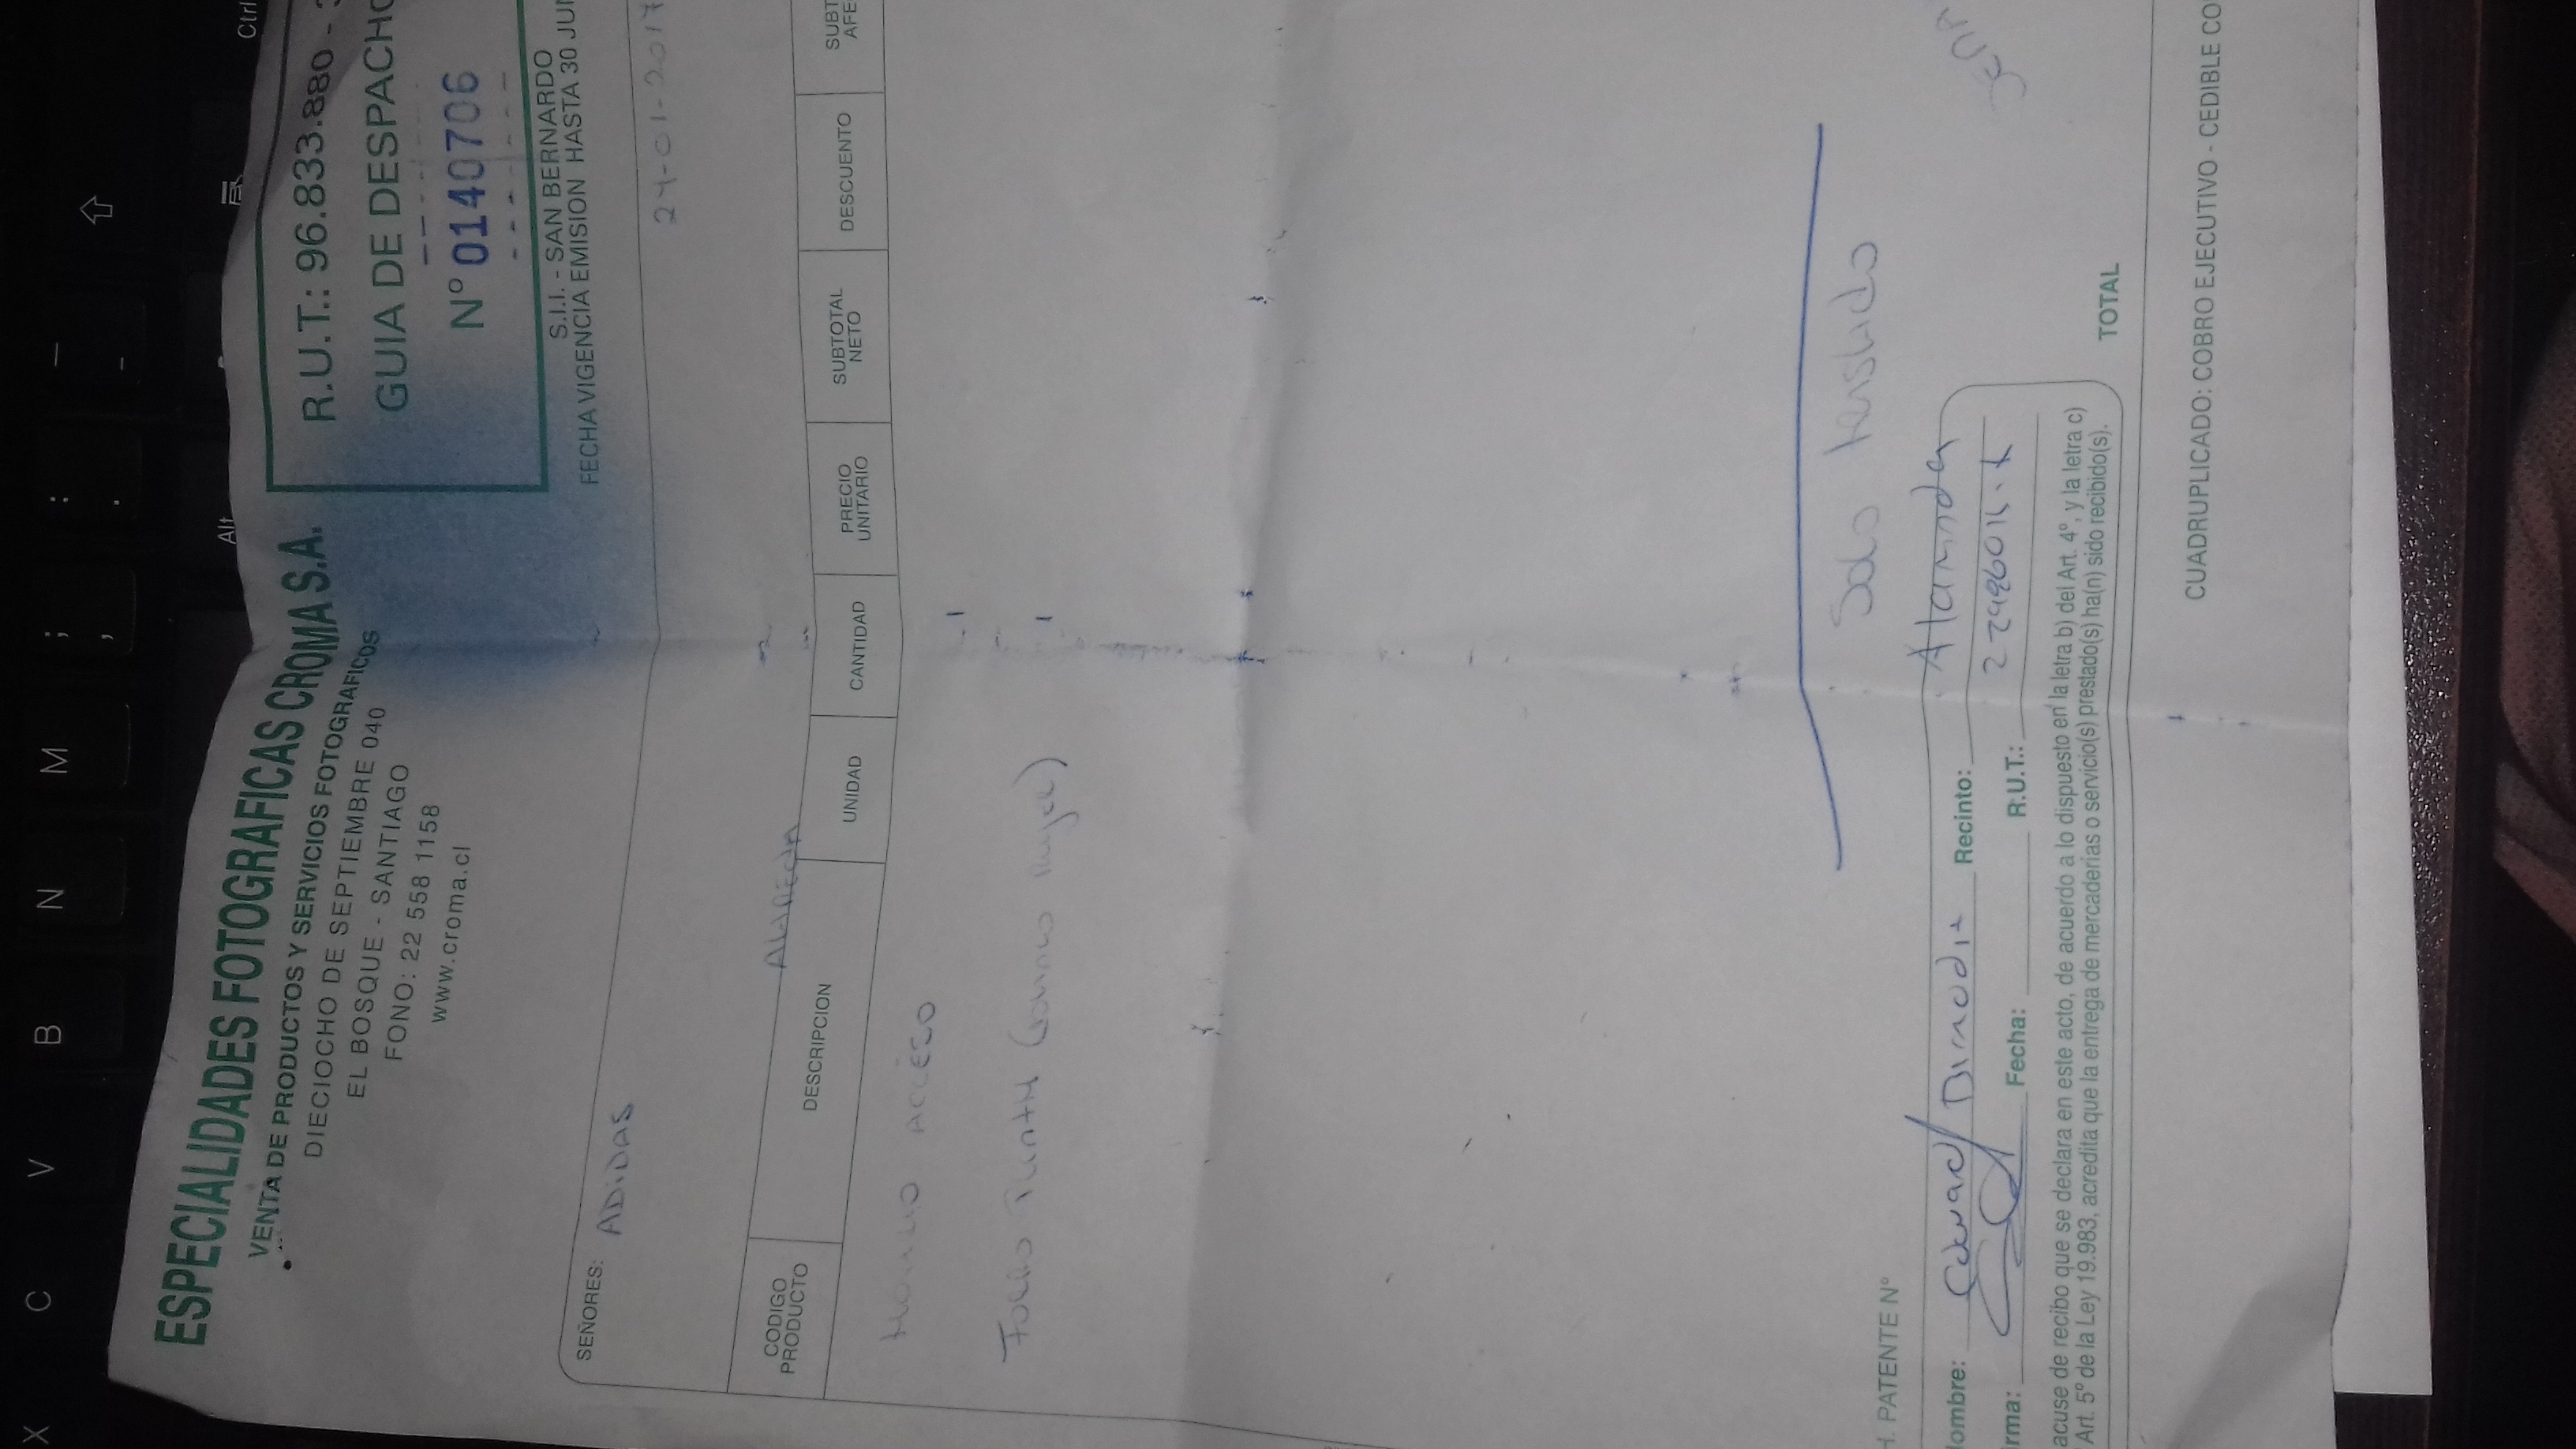 X C V B N M ; : —
, . -
Alt Ctrl
ESPECIALIDADES FOTOGRAFICAS CROMA S.A.
VENTA DE PRODUCTOS Y SERVICIOS FOTOGRAFICOS
DIECIOCHO DE SEPTIEMBRE 040
EL BOSQUE - SANTIAGO
FONO: 22 558 1158
www.croma.cl
R.U.T.: 96.833.880 -
GUIA DE DESPACHO
N° 0140706
S.I.I. - SAN BERNARDO
FECHA VIGENCIA EMISION HASTA 30 JUN
SEÑORES: ADIDAS
24-01-2017
CODIGO PRODUCTO
DESCRIPCION
UNIDAD
CANTIDAD
PRECIO UNITARIO
SUBTOTAL NETO
DESCUENTO
SUBT
AFE
ACCESO 1
Forro 1
Solo traslado
H. PATENTE N°
Nombre: Recinto: Alameda
Firma: Fecha: R.U.T.:
acuse de recibo que se declara en este acto, de acuerdo a lo dispuesto en la letra b) del Art. 4°, y la letra c)
Art. 5° de la Ley 19.983, acredita que la entrega de mercaderías o servicio(s) prestado(s) ha(n) sido recibido(s).
TOTAL
CUADRUPLICADO: COBRO EJECUTIVO - CEDIBLE CO